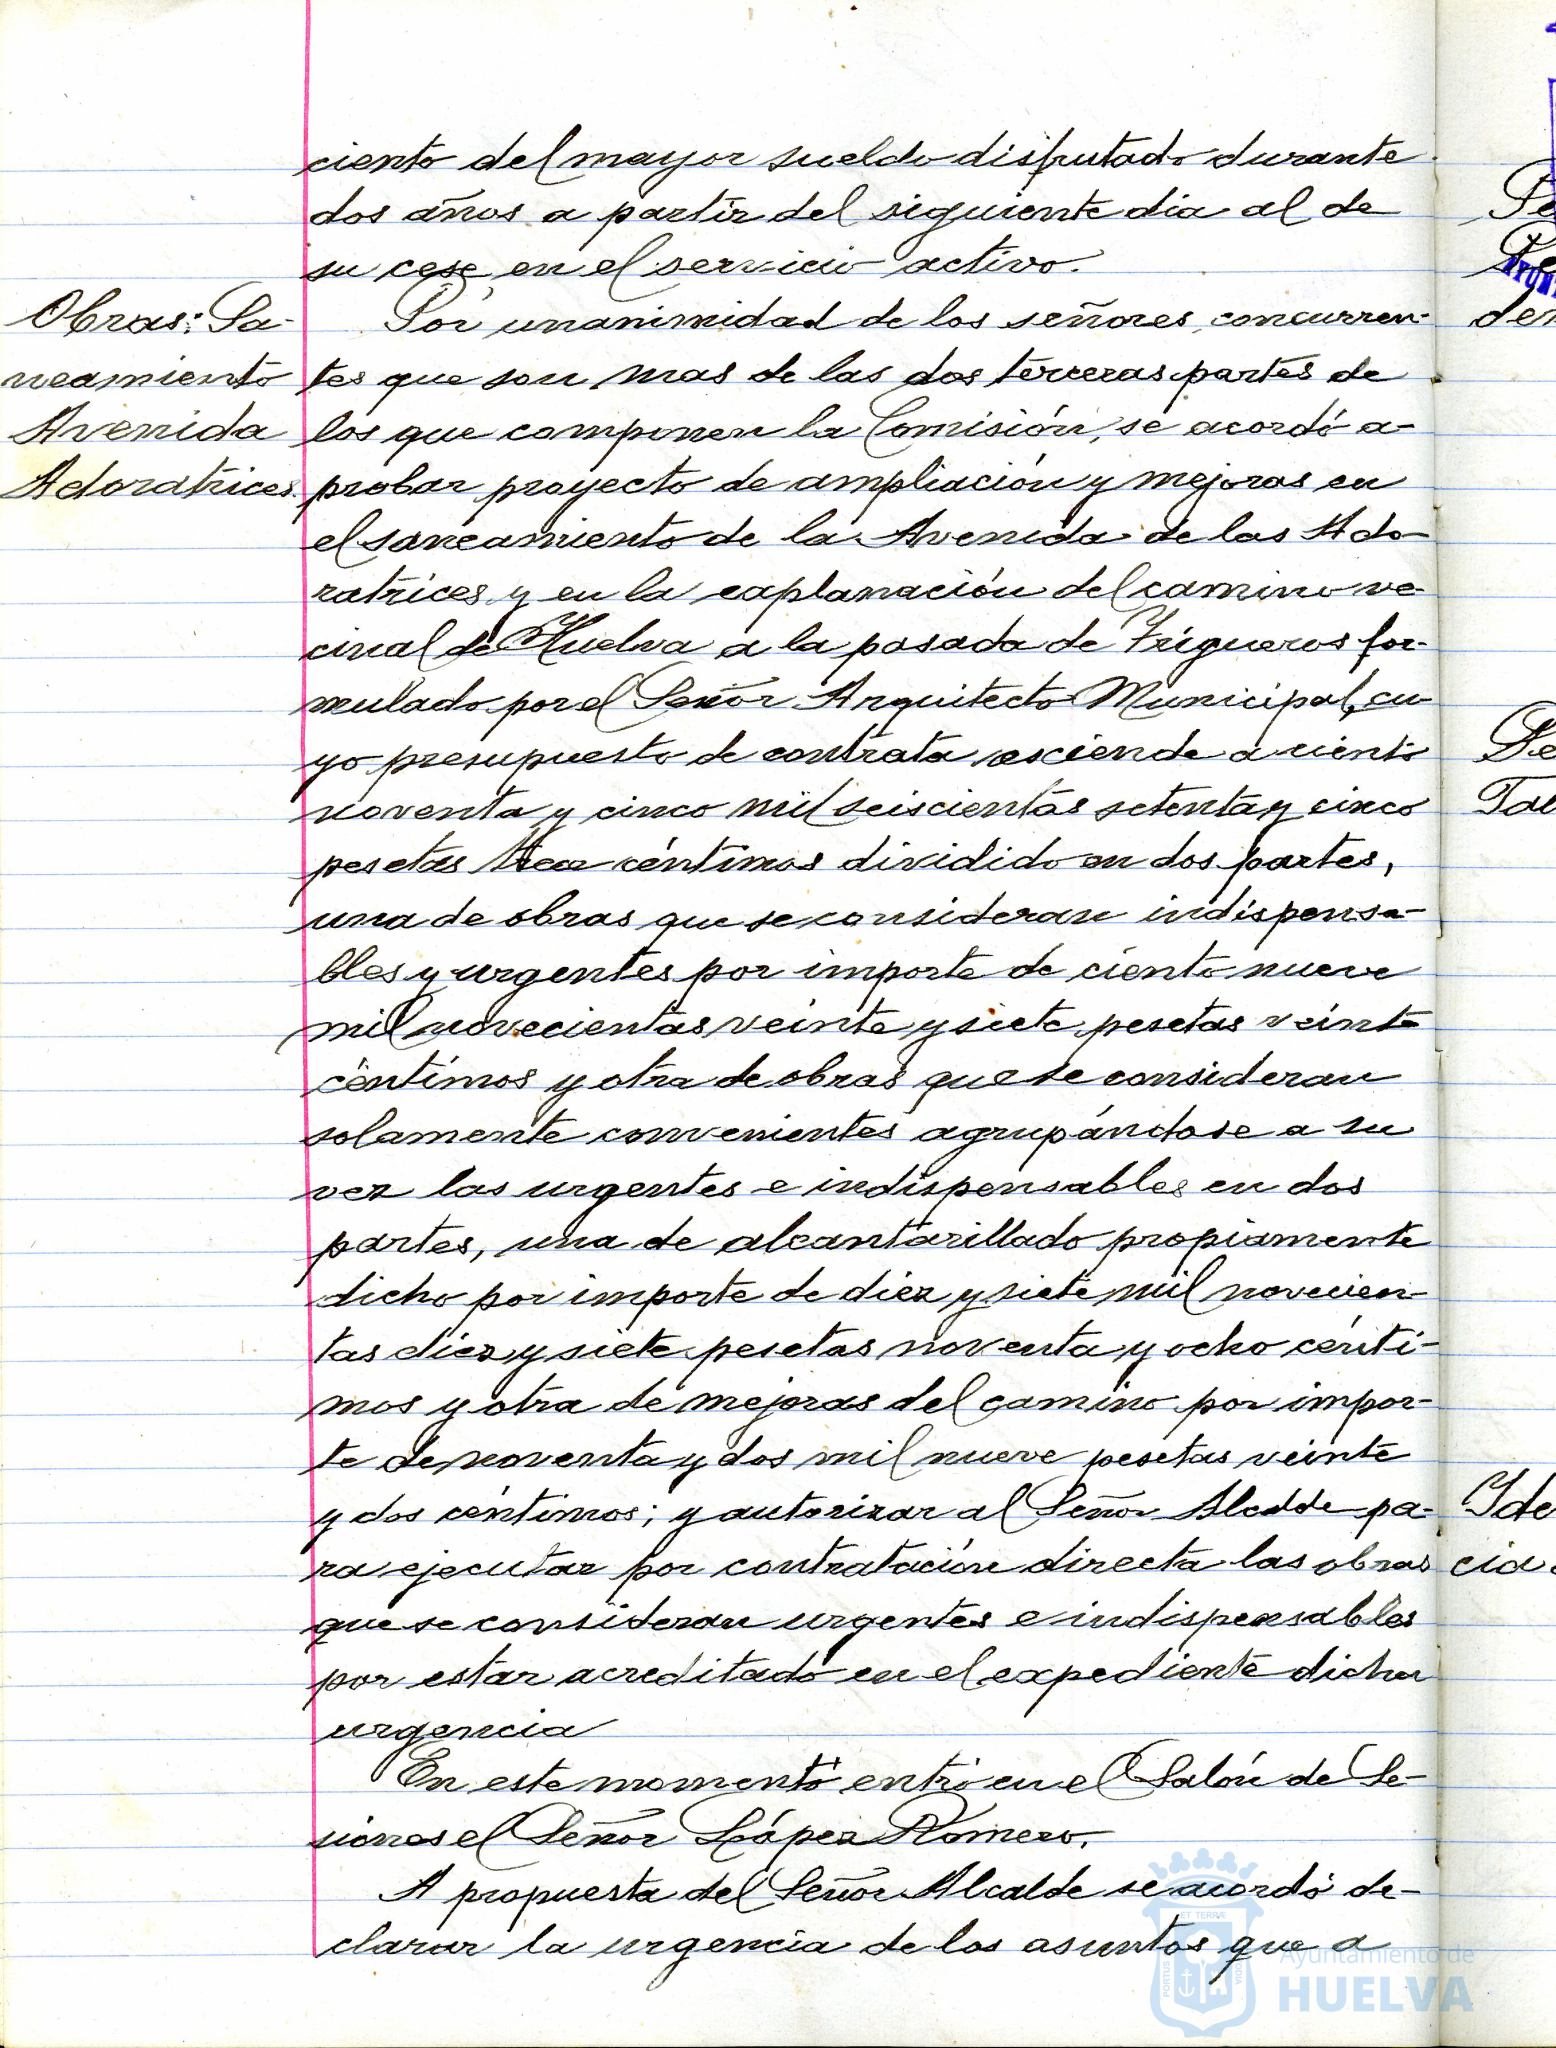 ciento del mayor sueldo disfrutado durante
dos años a partir del siguiente dia al de
su cese en el servicio activo.
Obras: Sa-
neamiento
Avenida
Adoratrices.
Por unanimidad de los señores concurren-
tes que son mas de las dos terceras partes de
los que componen la Comisión, se acordó a-
probar proyecto de ampliación y mejoras en
el saneamiento de la Avenida de las Ado-
ratrices y en la explanación del camino ve-
cinal de Huelva a la posada de Trigueros for-
mulado por el Señor Arquitecto Municipal, cu-
yo presupuesto de contrata asciende a ciento
noventa y cinco mil seiscientas setenta y cinco
pesetas céntimos dividido en dos partes,
una de obras que se consideran indispensa-
bles y urgentes por importe de ciento nueve
mil novecientas veinte y siete pesetas veinte
céntimos y otra de obras que se consideran
solamente convenientes agrupándose a su
vez las urgentes e indispensables en dos
partes, una de alcantarillado propiamente
dicho por importe de diez y siete mil novecien-
tas diez y siete pesetas noventa y ocho cénti-
mos y otra de mejoras del camino por impor-
te de noventa y dos mil nueve pesetas veinte
y dos céntimos; y autorizar al Señor Alcalde pa-
ra ejecutar por contratación directa las obras
que se consideran urgentes e indispensables
por estar acreditado en el expediente dicha
urgencia
En este momento entró en el Salón de Se-
siones el Señor López Romero.
A propuesta del Señor Alcalde se acordó de-
clarar la urgencia de los asuntos que a
Ayuntamiento de
HUELVA